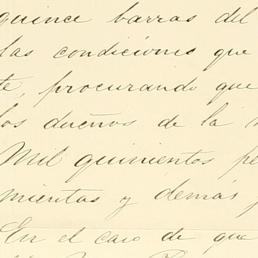 quince barras del
las condiciones que
te, procurando que
los dueños de la
Mil quinientos pe
mientas y demás
En el caso de que